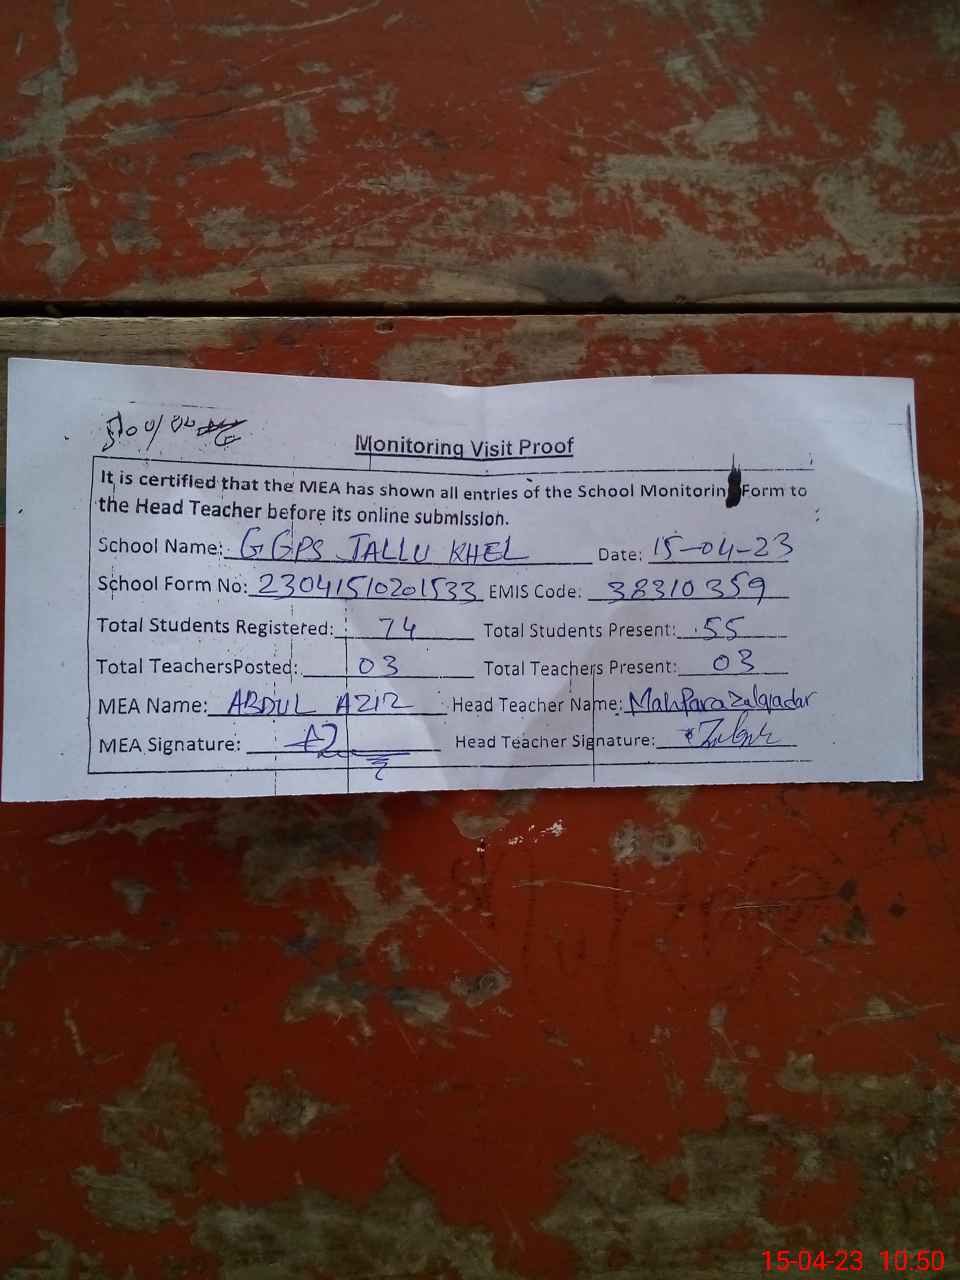 Monitoring Visit Proof
It is certified that the MEA has shown all entries of the School Monitorin Form to
the Head Teacher before its online submission.
School Name: GGPS JALLU KHEL Date: 15-04-23
School Form No: 23041510201533 EMIS Code: 38310359
Total Students Registered: 74 Total Students Present: 55
Total TeachersPosted: 03 Total Teachers Present: 03
MEA Name: ABDUL AZIZ Head Teacher Name: MahPara Zulqadar
MEA Signature: Head Teacher Signature:
15-04-23 10:50